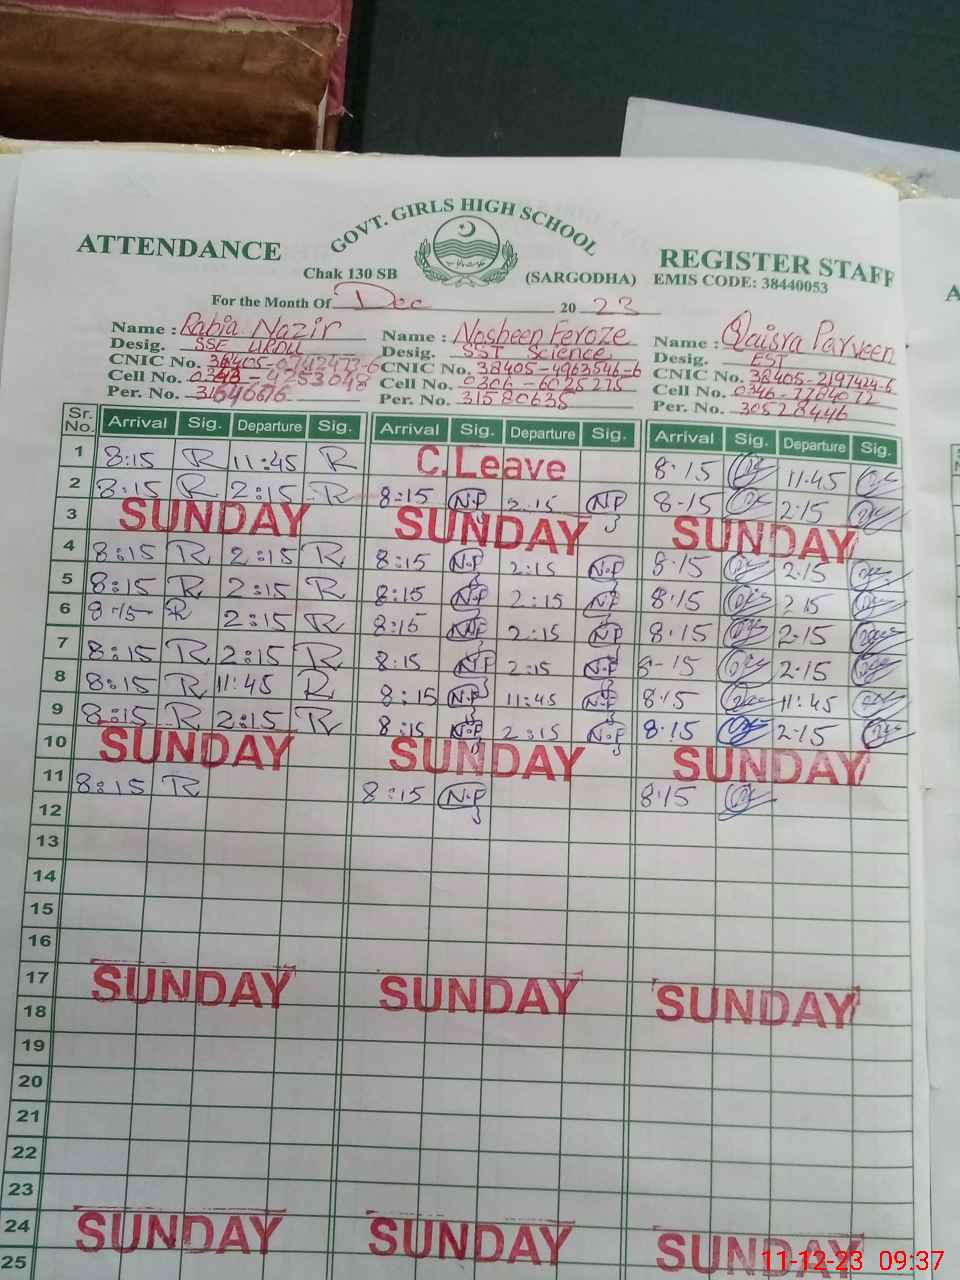 GOVT. GIRLS HIGH SCHOOL
ATTENDANCE REGISTER STAFF
Chak 130 SB (SARGODHA) EMIS CODE: 38440053
For the Month Of Dec 20 23
Name : Rabia Nazir Name : Nosheen Feroze Name : Qaisra Parveen
Desig. SSE URDU Desig. SST Science Desig. EST
CNIC No. CNIC No. 38405-4963546-6 CNIC No. 38405-2197424-6
Cell No. Cell No. 0306-6025275 Cell No.
Per. No. 31640676 Per. No. 31580638 Per. No. 30528446
Sr. No. Arrival Sig. Departure Sig. Arrival Sig. Departure Sig. Arrival Sig. Departure Sig.
1 8:15 R 11:45 R C.Leave 8.15 11.45
2 8:15 R 2:15 R 8:15 N.F 2.15 N.F 8.15 2.15
3 SUNDAY SUNDAY SUNDAY
4 8:15 R 2:15 R 8:15 N.F 2:15 N.F 8.15 2.15
5 8:15 R 2:15 R 8:15 N.F 2:15 N.F 8.15 2.15
6 8:15 R 2:15 R 8:15 N.F 2:15 N.F 8.15 2.15
7 8:15 R 2:15 R 8:15 N.F 2:15 N.F 8-15 2.15
8 8:15 R 11:45 R 8:15 N.F 11:45 N.F 8.15 11.45
9 8:15 R 2:15 R 8:15 N.F 2:15 N.F 8.15 2.15
10 SUNDAY SUNDAY SUNDAY
11 8:15 R 8:15 N.F 8.15
12
13
14
15
16
17 SUNDAY SUNDAY SUNDAY
18
19
20
21
22
23
24 SUNDAY SUNDAY SUNDAY
25
11-12-23 09:37